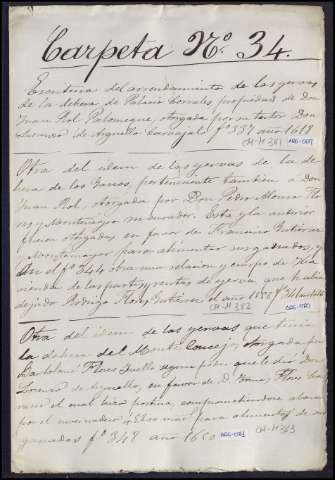 Carpeta Nº 34.
Escritura del arrendamiento de las yervas
de la dehesa de Palacio Corrales propiedad de Don
Juan Rol Palomeque, otorgada por su tutor Don
de Arguello Carvajal fº 337 año 1618
CM-H 381
Otra del idem de las yervas de la de-
hesa de los perteneciente tambien a Don
Juan Rol, otorgada por Don Pedro Alonso Flo-
res y Montemayor su curador. Esta y la anterior
fueron otorgadas en favor de Francisco Gutierrez
y Montemayor para alimentar sus ganados, y
en el fº 344 obra una relacion y cuerpo de Ha-
cienda de las partes y rentas de yerva que habia
dejado Rodrigo Flores Gutierrez el año 1658
CM-H 382
Otra del idem de las yervas que tenia
la dehesa del Monte Concejo, otorgada por
Bartolomé Flores
Lorenzo de Arguello, en favor de D. Tomas Flores
el cual hizo postura, comprometiendose abonar
por el invernadero mas para alimentar sus
ganados fº 348 año 1650
CM-H 383